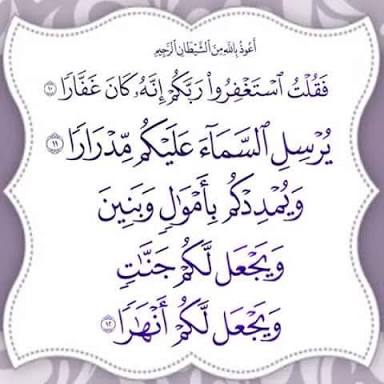 أَعُوذُ بِاللَّهِ مِنَ الشَّيْطَانِ الرَّجِيمِ
فَقُلْتُ ٱسْتَغْفِرُوا۟ رَبَّكُمْ إِنَّهُۥ كَانَ غَفَّارًا ١٠
يُرْسِلِ ٱلسَّمَآءَ عَلَيْكُم مِّدْرَارًا ١١
وَيُمْدِدْكُم بِأَمْوَٰلٍ وَبَنِينَ
وَيَجْعَل لَّكُمْ جَنَّـٰتٍ
وَيَجْعَل لَّكُمْ أَنْهَـٰرًا ١٢